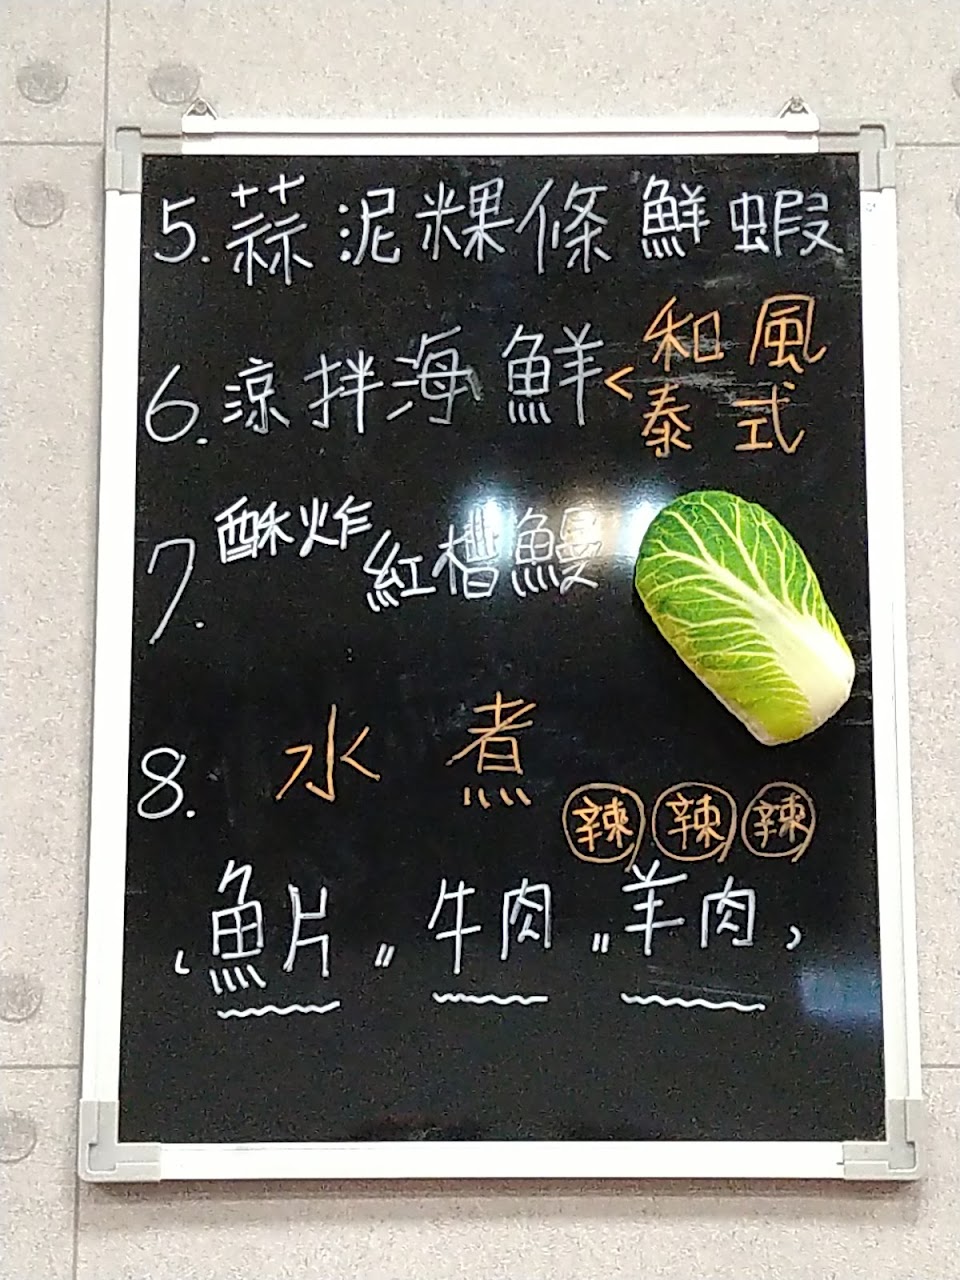 5.蒜泥粿條鮮蝦
6.涼拌海鮮<和風
泰式
7.酥炸紅糟鰻
8.水煮
辣 辣 辣
、魚片〃牛肉〃羊肉、